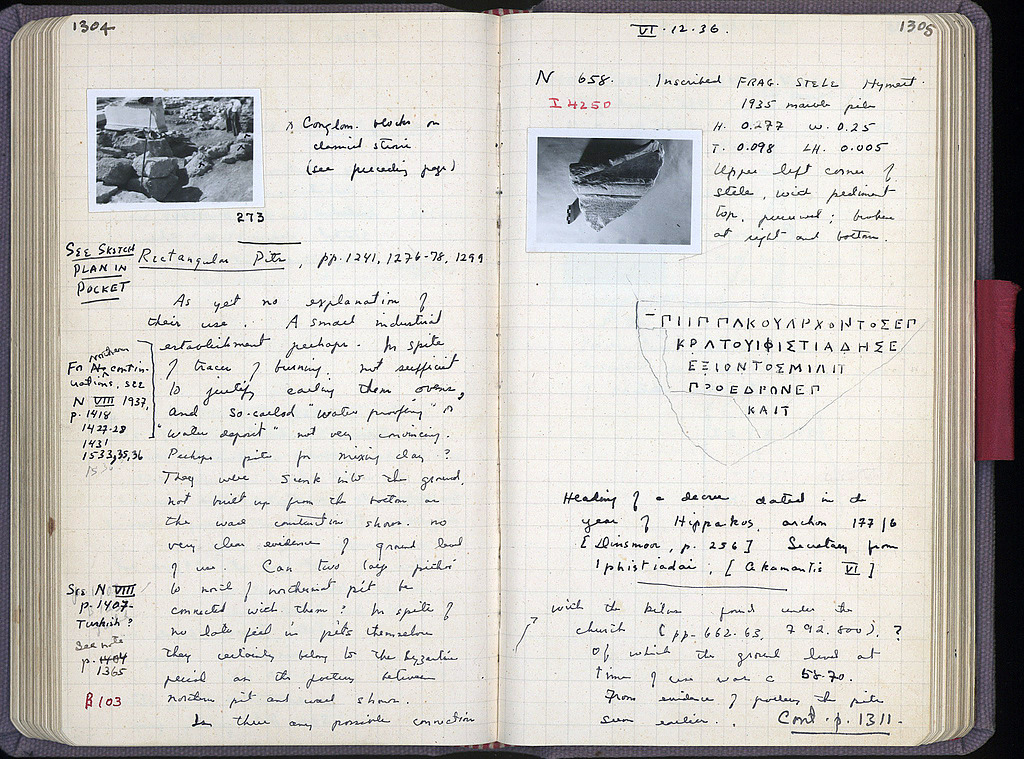 1304
* Conglom. blocks on
classical stroses
(see preceding page)
273
SEE SKETCH
PLAN IN
POCKET
Rectangular Pits, pp. 1241, 1276-78, 1299
As yet no explanation of
their use. A small industrial
establishment perhaps. In spite
of traces of burning, not sufficient
to justify calling them ovens,
and so-called "water proofing" or
"water deposit" not very convincing.
Perhaps pits for mixing clay?
They were sunk into the ground,
not built up from the bottom as
the wall construction shows. no
very clear evidence of ground level
of use. Can two large pithoi
to north of northernmost pit be
connected with them? In spite of
no late feel in pits themselves
they certainly belong to the Byzantine
period as the pottery between
northern pit and wall shows.
Is there any possible connection
For northern contin-
uations, see
N VIII 1937,
p. 1418
1427-28
1431
1533,35,36
See N VIII
p. 1407-
Turkish?
See note
p. 1404
1365
B 103
VI.12.36.
1305
N 658. Inscribed FRAG. STELE Hymett.
I 4250
1935 marble pile
H. 0.277 W. 0.25
T. 0.098 LH. 0.005
Upper left corner of
stele, with pediment
top, preserved; broken
at right and bottom.
ΕΠΙΙΠΠΑΚΟΥΑΡΧΟΝΤΟΣΕΠ
ΚΡΑΤΟΥΙΦΙΣΤΙΑΔΗΣΕ
ΕΞΙΟΝΤΟΣΜΙΑΙΠ
ΠΡΟΕΔΡΩΝΕΠ
ΚΑΙΤ
Heading of a decree dated in the
year of Hippakos, archon 177/6
[Dinsmoor, p. 256] Secretary from
Iphistiadai, [Akamantis VI]
with the kilns found under the
church (pp. 662-63, 792, 800). ?
Of which the ground level at
time of use was c 58.70.
From evidence of pottery the pits
seem earlier. Cont. p. 1311-